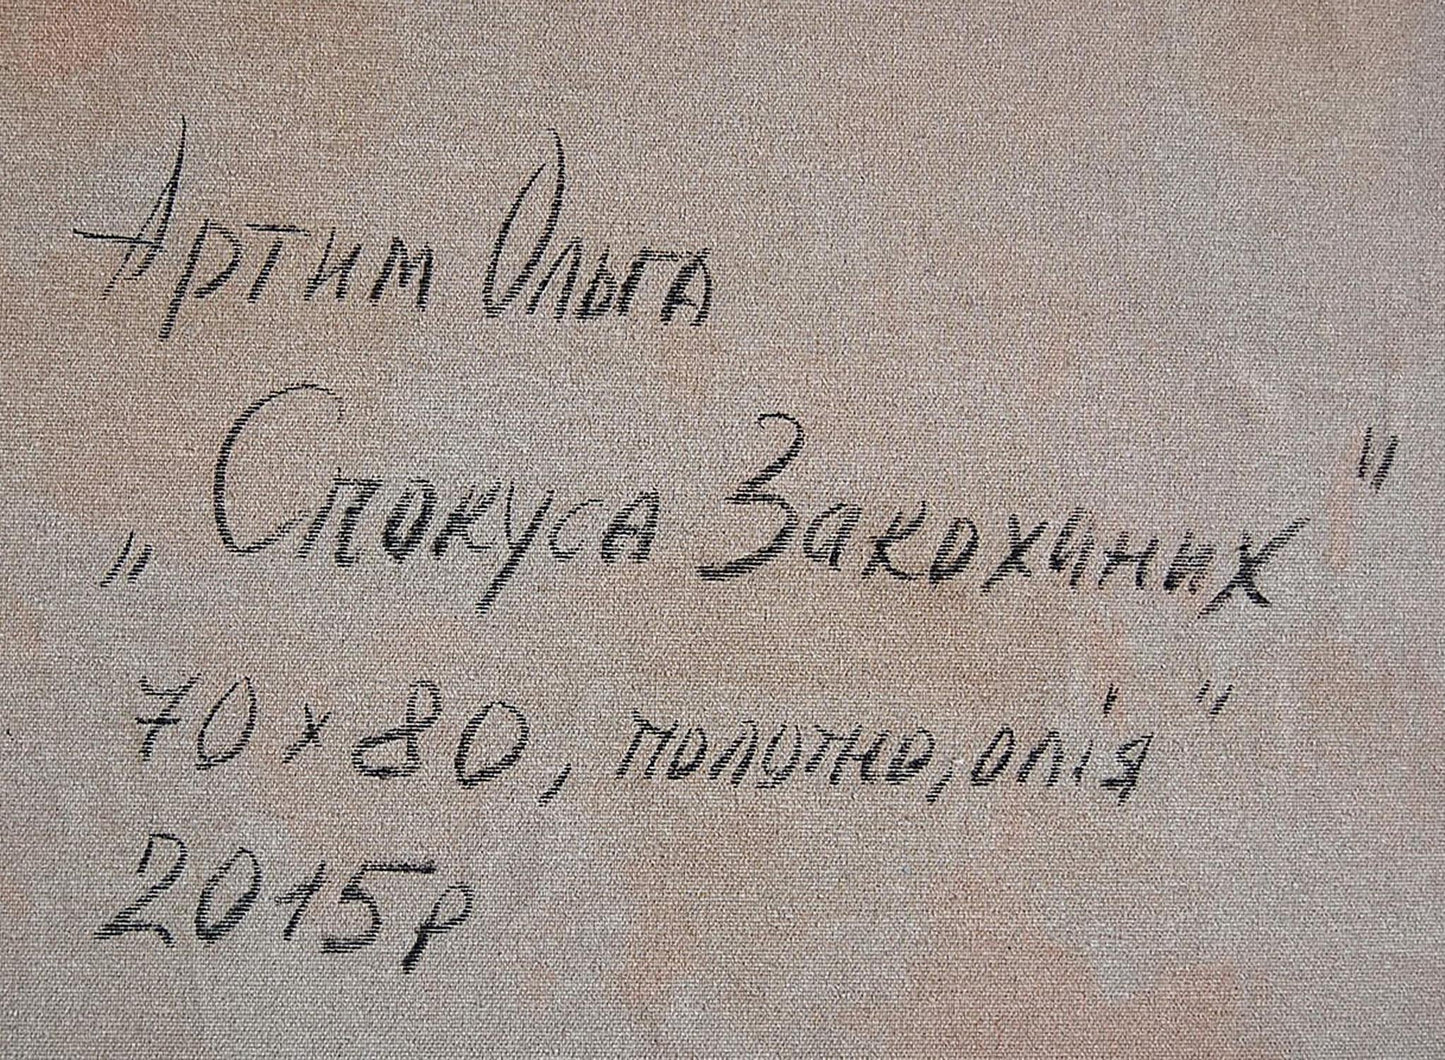 Артим Ольга
„Спокуса Закоханих"
70 x 80, полотно, олія"
2015р